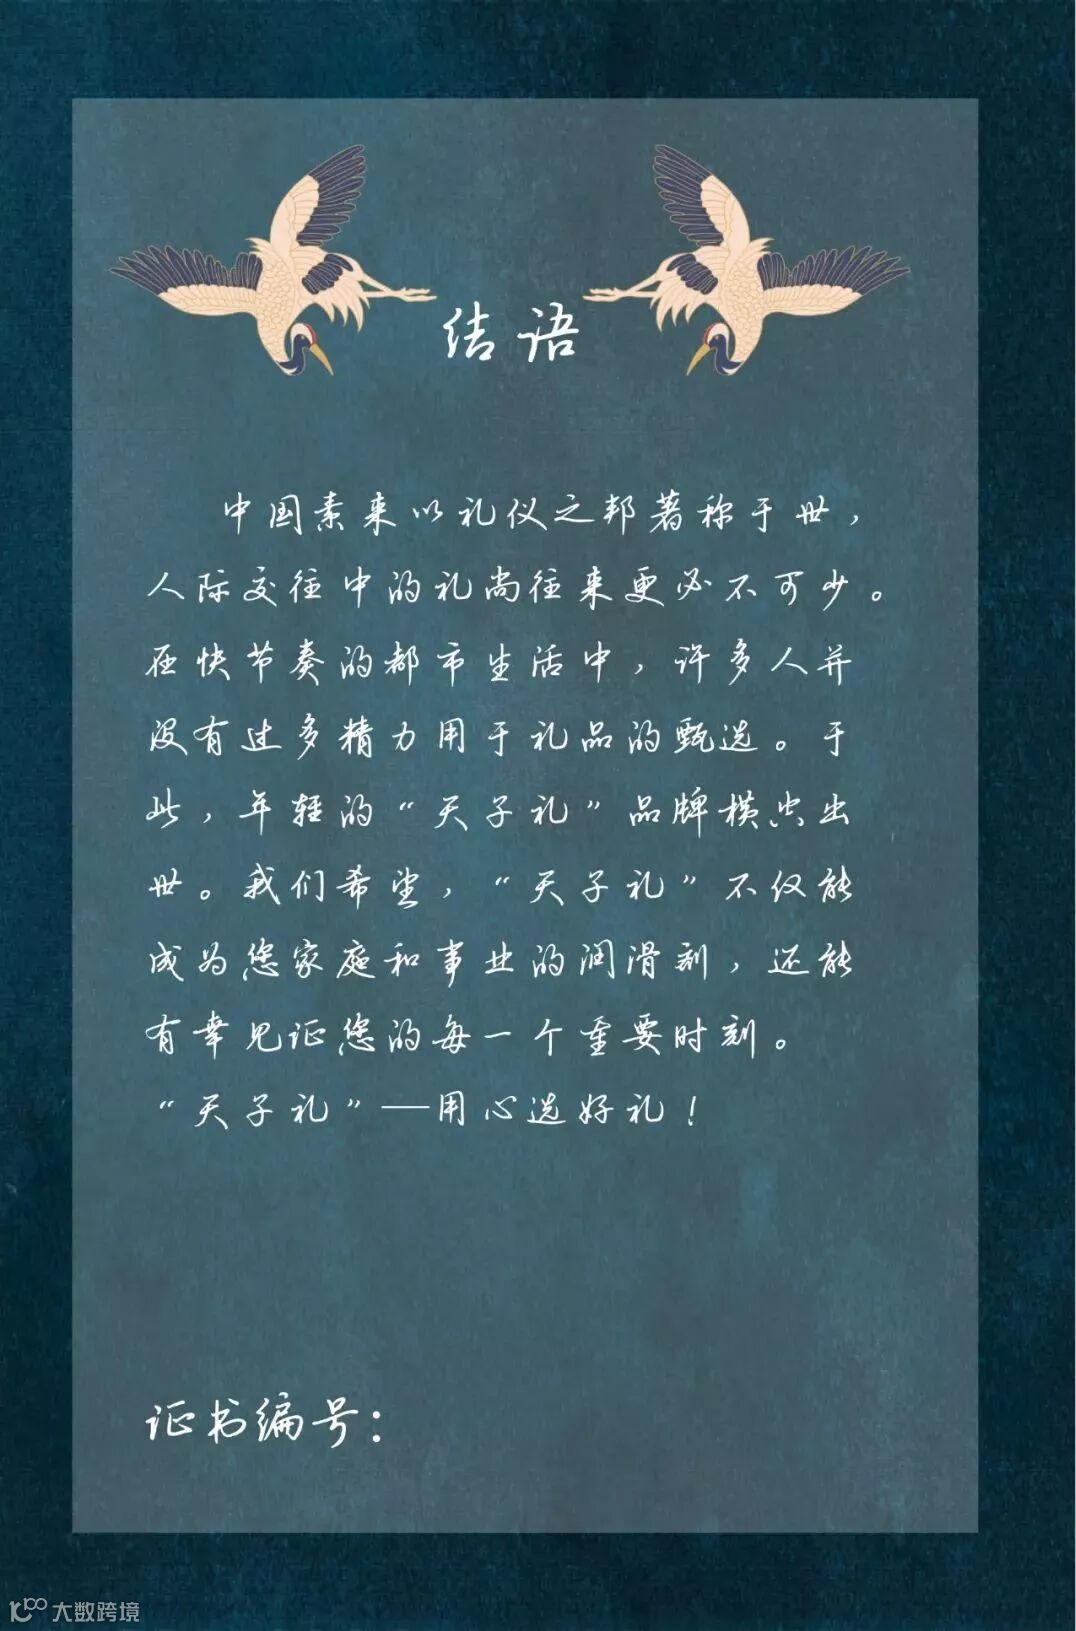 结语
中国素来以礼仪之邦著称于世，
人际交往中的礼尚往来更必不可少。
在快节奏的都市生活中，许多人并
没有过多精力用于礼品的甄选。于
此，年轻的“天子礼”品牌横空出
世。我们希望，“天子礼”不仅能
成为您家庭和事业的润滑剂，还能
有幸见证您的每一个重要时刻。
“天子礼”——用心选好礼！
证书编号：
大数跨境